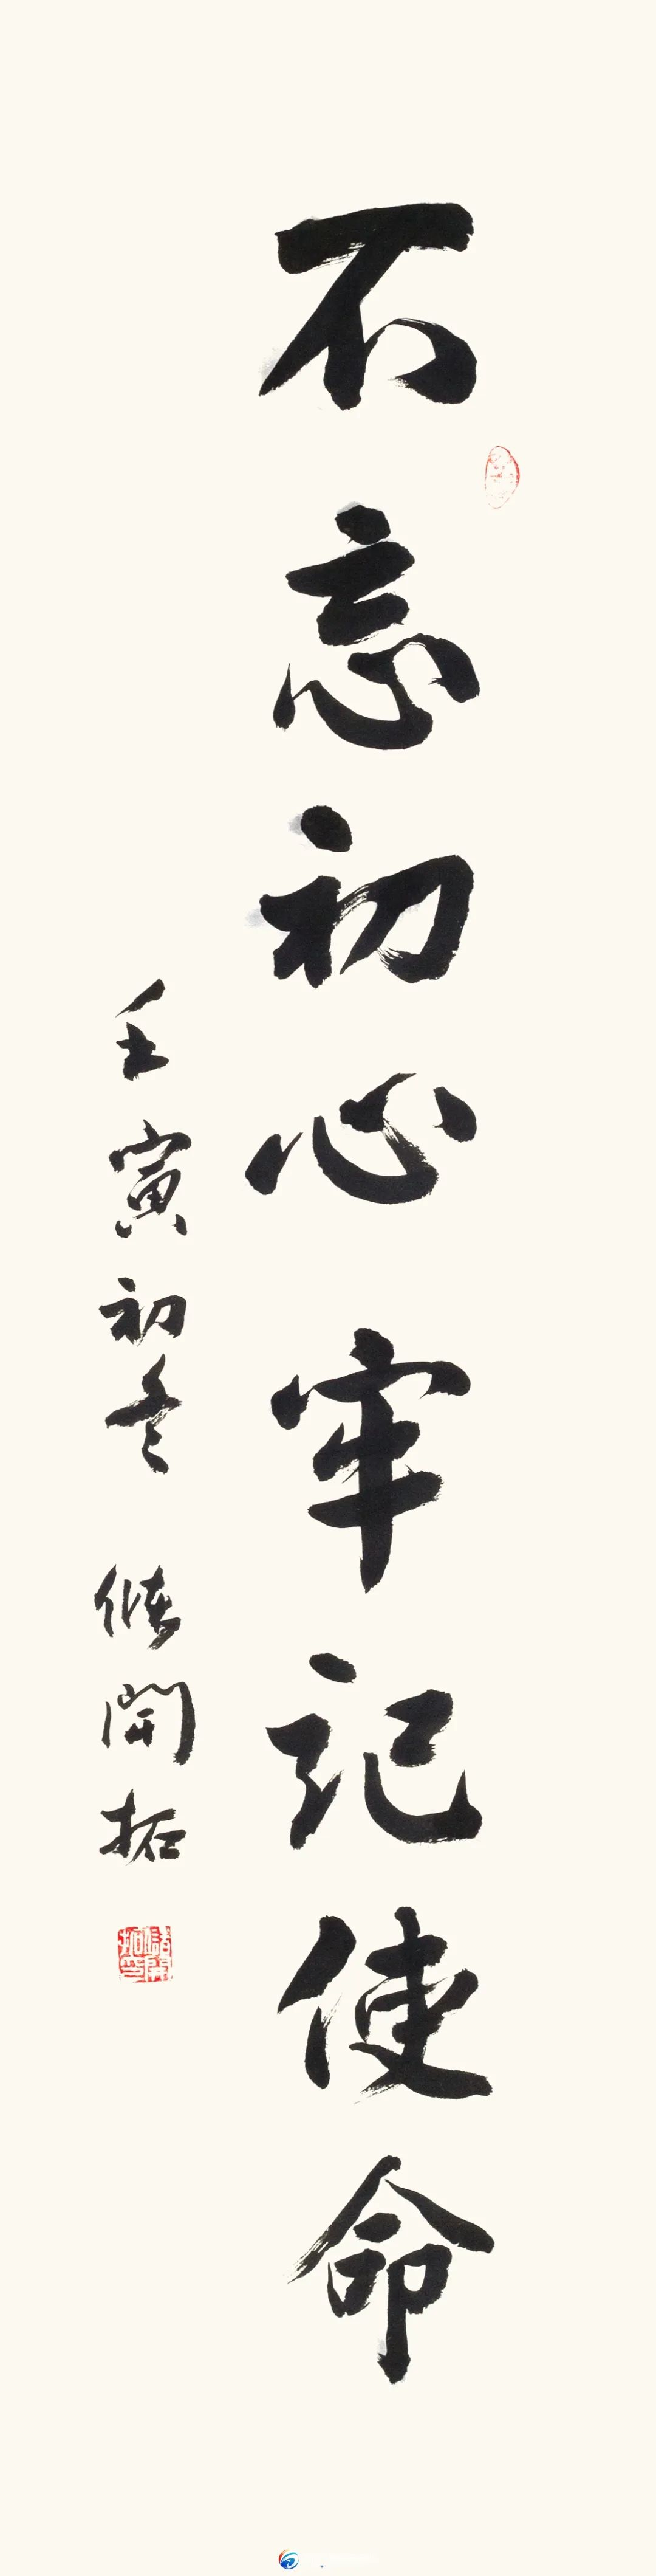 不忘初心牢记使命
壬寅初冬 储开拓